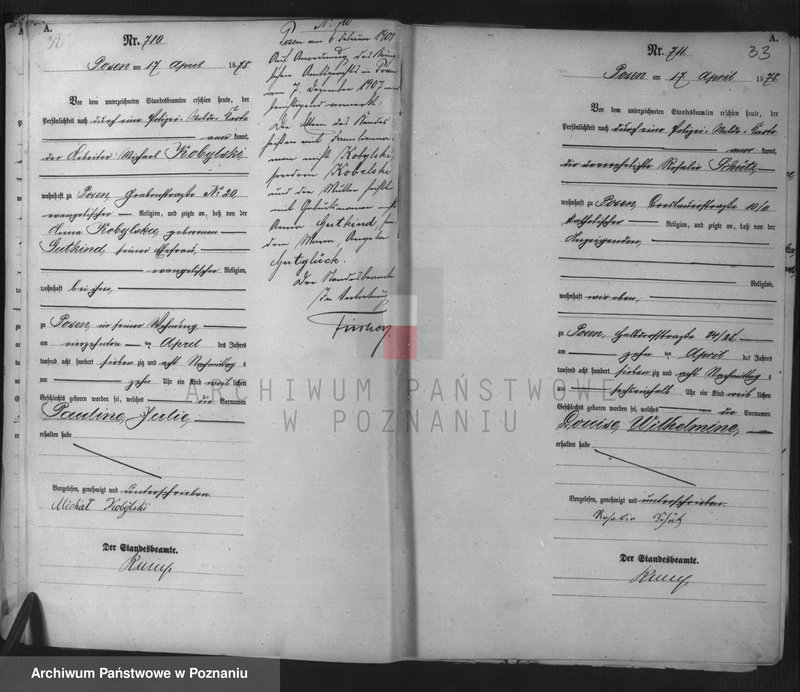 A.
32
Nr. 710
Posen am 17 April 1875
Vor dem unterzeichneten Standesbeamten erschien heute, der
Persönlichkeit nach durch eine Polizei-Melde-Karte
anerkannt,
der Arbeiter Michael Kobylski,
wohnhaft zu Posen Grabenstraße No 20
evangelischer Religion, und zeigte an, daß von der
Anna Kobylska geborenen
Gutkind, seiner Ehefrau,
evangelischer Religion,
wohnhaft bei ihm,
zu Posen in seiner Wohnung
am vierzehnten ten April des Jahres
tausend acht hundert sieben zig und acht Nachmittag s
um zehn Uhr ein Kind weiblichen
Geschlechts geboren worden sei, welches die Vornamen
Pauline, Julie,
erhalten habe
Vorgelesen, genehmigt und unterschrieben.
Michał Kobylski
Der Standesbeamte.
Rump.
Posen am 6 Februar 1908
Auf Anordnung des König-
lichen Amtsgerichts in Posen
vom 7. Dezember 1907 wird
vermerkt:
Die Eltern des Kindes
heißen mit Familien-
namen nicht Kobylski,
sondern Kobelski
und die Mutter heißt
mit Geburtsnamen nicht
Anna Gutkind, son-
dern Maria, Angela
Gutglück.
Der Standesbeamte
In Vertretung
A.
33
Nr. 711
Posen am 17 April 1875
Vor dem unterzeichneten Standesbeamten erschien heute, der
Persönlichkeit nach durch eine Polizei-Melde-Karte
anerkannt,
die unverehelichte Rosalie Schütz
wohnhaft zu Posen, Breslauerstraße 10/11
katholischer Religion, und zeigte an, daß von der
Anzeigenden,
Religion,
wohnhaft wie oben,
zu Posen, Halbdorfstraße 24/25
am zehn ten April des Jahres
tausend acht hundert sieben zig und acht Nachmittag s
um Uhr ein Kind weiblichen
Geschlechts geboren worden sei, welches die Vornamen
Louise, Wilhelmine,
erhalten habe
Vorgelesen, genehmigt und unterschrieben.
Rosalie Schütz
Der Standesbeamte.
Rump.
ARCHIWUM PAŃSTWOWE
W POZNANIU
Archiwum Państwowe w Poznaniu